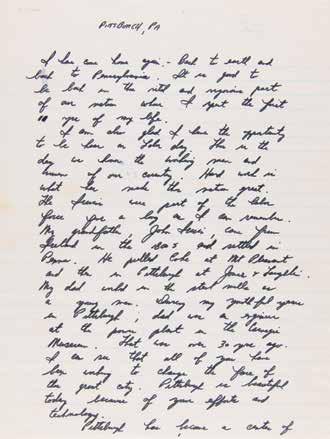 PITTSBURGH, PA
I have come home again. - back to earth and
back to Pennsylvania. It is good to
be back in this vital and vigorous part
of our nation where I spent the first
10 yrs of my life.
I am also glad I have the opportunity
to be here on Labor day. This is the
day we honor the working men and
women of our country. Hard work is
what has made this nation great.
The Irwins were part of the labor
force for as long as I can remember.
My grandfather, John Irwin, came from
Ireland in the 1800's and settled in
Penna. He pulled Coke at Mt Pleasant
and then in Pittsburgh at Jones & Laughlin.
My dad worked in the steel mills as
a young man. During my youthful years
in Pittsburgh, dad was an engineer
at the power plant in the Carnegie
Museum. That was over 30 yrs ago.
I can see that all of you have
been working to change the face of
this great city. Pittsburgh is beautiful
today because of your efforts and
technology.
Pittsburgh has become a center of